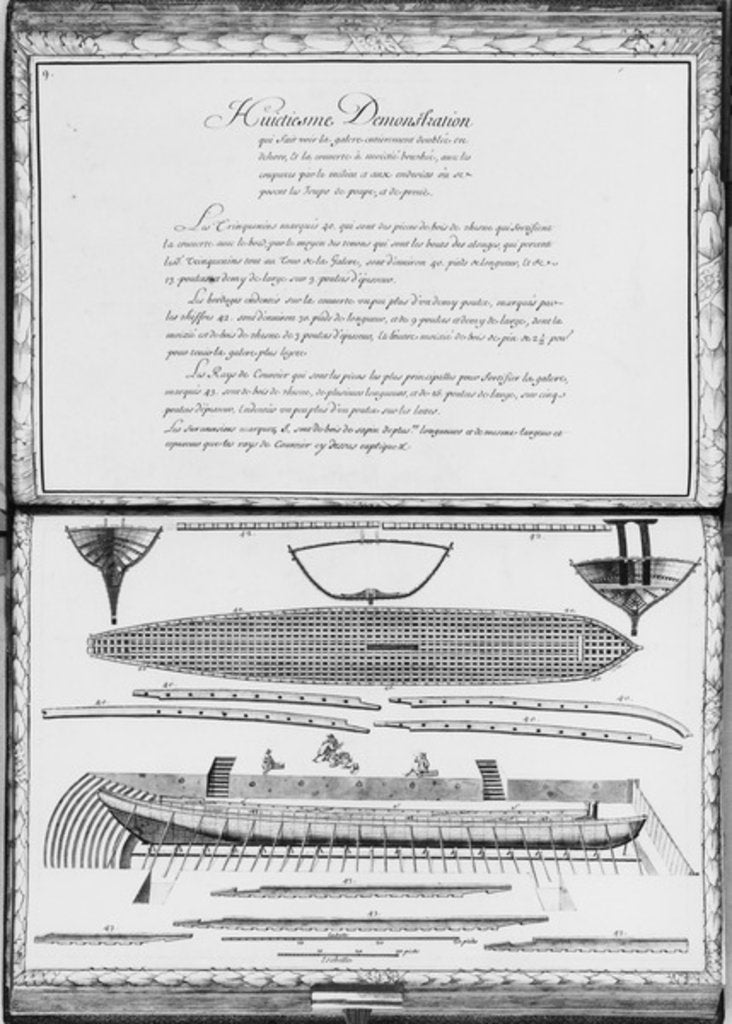 9.
Huictiesme Demonstration
qui fait voir la galere entierement doublée en
dehors, et la couverte à moictié bordée, avec les
couppures par le milieu et aux endroits où se
posent les Joups de poupe, et de proüe.
Les Trinquenins marqués 40. qui sont des pieces de bois de chesne qui fortifient
la couverte avec le bord, par le moyen des tenons qui sont les bouts des alonges, qui percent
Trinquenins tout au Tour de la Galere, sont d'environ 40. pieds de longueur, et de
13. pouces et demy de large sur 3. pouces d'épaisseur.
Les bordages endentés sur la couverte un peu plus d'un demy pouce, marqués par
les chiffres 42. sont d'environ 30. pieds de longueur, et de 9 pouces et demy de large, dont la
moictié est de bois de chesne de 3 pouces d'épaisseur, et l'autre moictié de bois de pin de 2½ pour
pour tenir la galere plus legere
Les Rays de Courcier qui sont les pieces les plus principalles pour fortifier la galere,
marqués 43. sont de bois de chesne, de plusieurs longueurs, et de 16 pouces de large, sur cinq
pouces d'épaisseur, endentés un peu plus d'un pouce sur les lattes.
Les sont de bois de sapin de plus.rs longueurs et de mesme largeur et
espaisseur que les rays de Courcier cy dessus expliqués
42.
42.
40.
40.
40.
40.
40.
40.
43.
43.
43.
43.
Eschelle
pieds
pieds
Eschelle